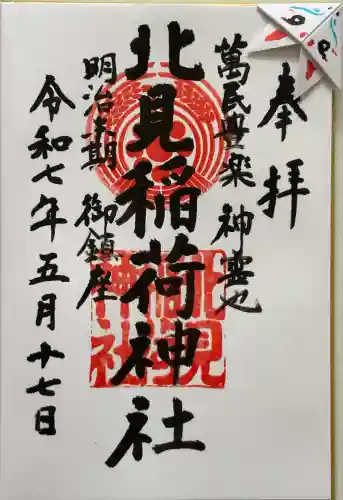 奉拝
萬民豊楽 神霊也
北見稲荷神社
明治年期 御鎮座
令和七年五月十七日
北見稲荷神社